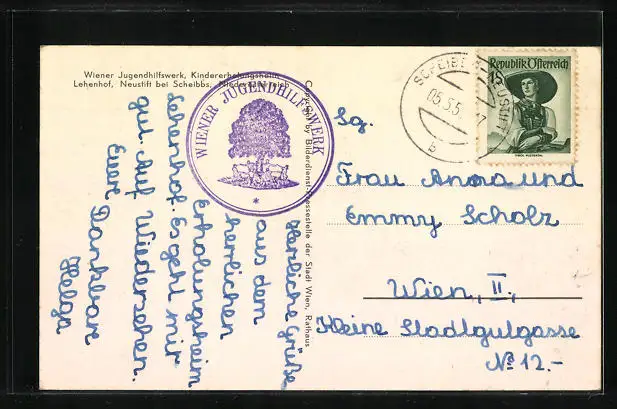 Wiener Jugendhilfswerk, Kindererholungsheim
Lehenhof, Neustift bei Scheibbs, Niederösterreich
WIENER JUGENDHILFSWERK
*
Copyright by Bilderdienst Pressestelle der Stadt Wien, Rathaus
Herzliche Grüße
aus dem
herrlichen
Erholungsheim
Lehenhof. Es geht mir
gut. Auf Wiedersehen.
Euer Dankbare
Helga
SCHEIBBS
05.5.5
b
Republik Österreich
1S
Sg.
Frau Anna und
Emmy Scholz
Wien, II.,
Kleine Stadtgutgasse
No 12.-